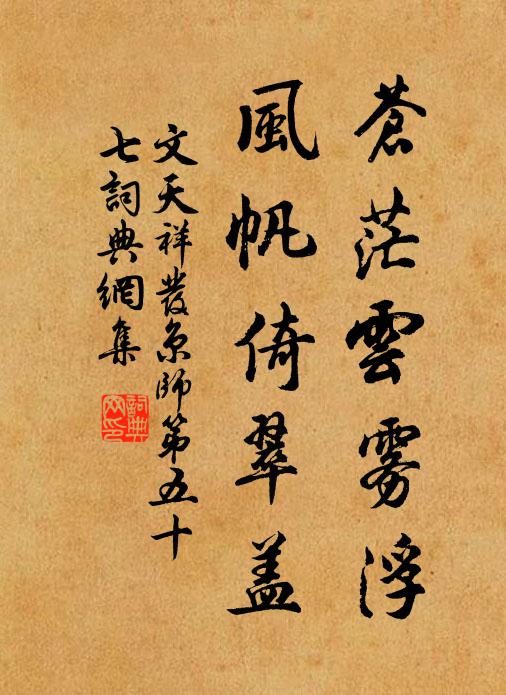 蒼茫雲霧浮
風帆倚翠盖
文天祥發京師第五十
七詞典網集
詞典網印